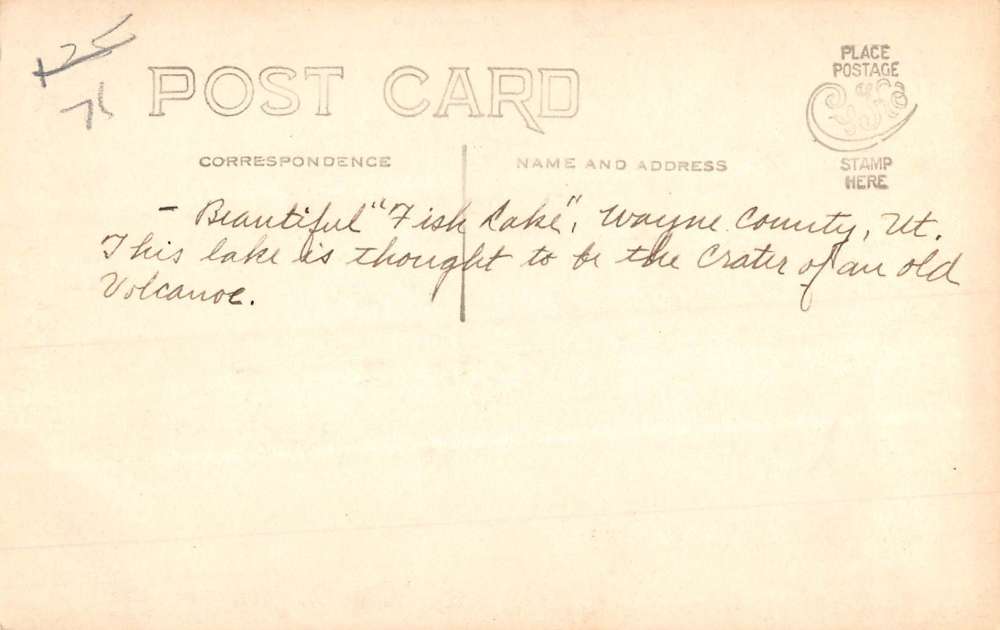 125
75
POST CARD
PLACE
POSTAGE
STAMP
HERE
CORRESPONDENCE
NAME AND ADDRESS
- Beautiful "Fish Lake", Wayne County, Ut.
This lake is thought to be the Crater of an old
Volcanoe.